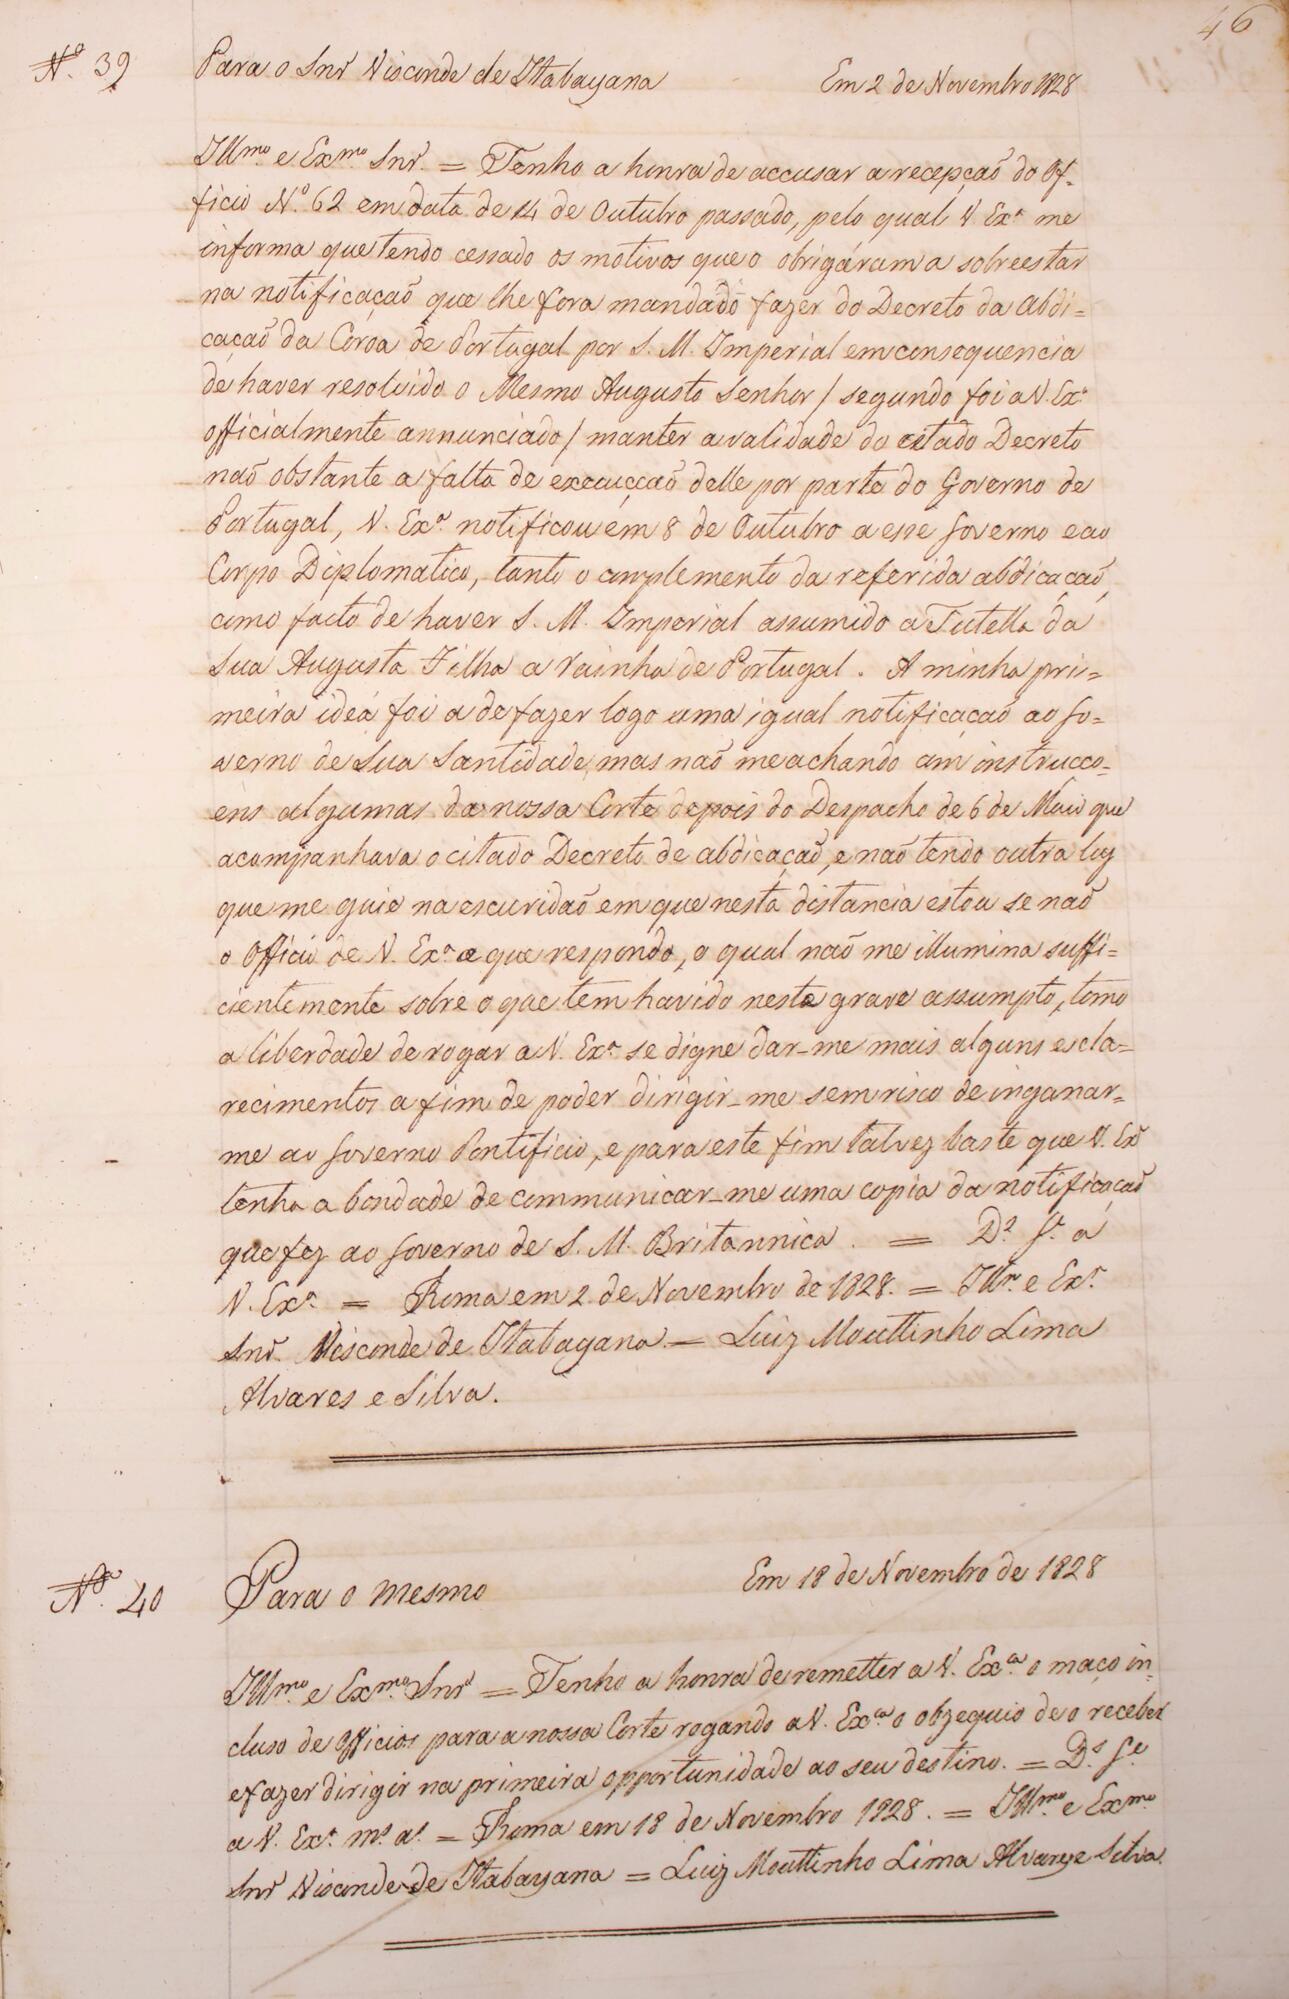 46
Nº. 39 Para o Snr Visconde de Itabayana Em 2 de Novembro 1828
Illmo e Exmo Snr. = Tenho a honra de accusar a recepção do Of-
ficio N.º 62 em data de 14 de Outubro passado, pelo qual V. Exª me
informa que tendo cessado os motivos que o obrigáram a sobreestar
na notificação que lhe fora mandado fazer do Decreto da Abdi=
cação da Coroa de Portugal por S. M. Imperial em consequencia
de haver resolvido o Mesmo Augusto Senhor / segundo foi a V. Exª
officialmente annunciado / manter a validade do citado Decreto
naõ obstante a falta de execucçaõ delle por parte do Governo de
Portugal, V. Exª notificou em 8 de Outubro a esse Governo e ao
Corpo Diplomatico, tanto o complemento da referida abdicaçaõ,
como facto de haver S. M. Imperial assumido a Tutella da
Sua Augusta Filha a Rainha de Portugal. A minha pri=
meira idea foi a de fazer logo uma igual notificaçaõ ao Go=
verno de Sua Santidade, mas naõ me achando com instrucco-
ens algumas da nossa Corte depois do Despacho de 6 de Maio que
acompanhava o citado Decreto de abdicaçaõ, e naõ tendo outra luz
que me guie na escuridaõ em que nesta distancia estou se naõ
o Officio de V. Exª a que respondo, o qual naõ me illumina suffi-
cientemente sobre o que tem havido neste grave assumpto, tomo
a liberdade de rogar a V. Exª se digne dar-me mais alguns escla=
recimentos a fim de poder dirigir-me sem risco de inganar=
me ao Governo Pontificio, e para este fim talvez baste que V. Exª
tenha a bondade de communicar-me uma copia da notificaçaõ
que fez ao Governo de S. M. Britannica. = Ds. Ge. a
V. Exª. = Roma em 2 de Novembro de 1828. = Illmo e Exmo
Snr. Visconde de Itabayana = Luiz Mouttinho Lima
Alvares e Silva.
Nº. 40 Para o mesmo Em 18 de Novembro de 1828
Illmo e Exmo Snr = Tenho a honra de remetter a V. Exª. o maço in-
cluso de Officios para a nossa Corte rogando a V. Exª o obzequio de o receber
e fazer dirigir na primeira opportunidade ao seu destino. = Ds. Ge
a V. Exª ms. as. = Roma em 18 de Novembro 1828. = Illmo e Exmo
Snr Visconde de Itabayana = Luiz Mouttinho Lima Alvares e Silva.